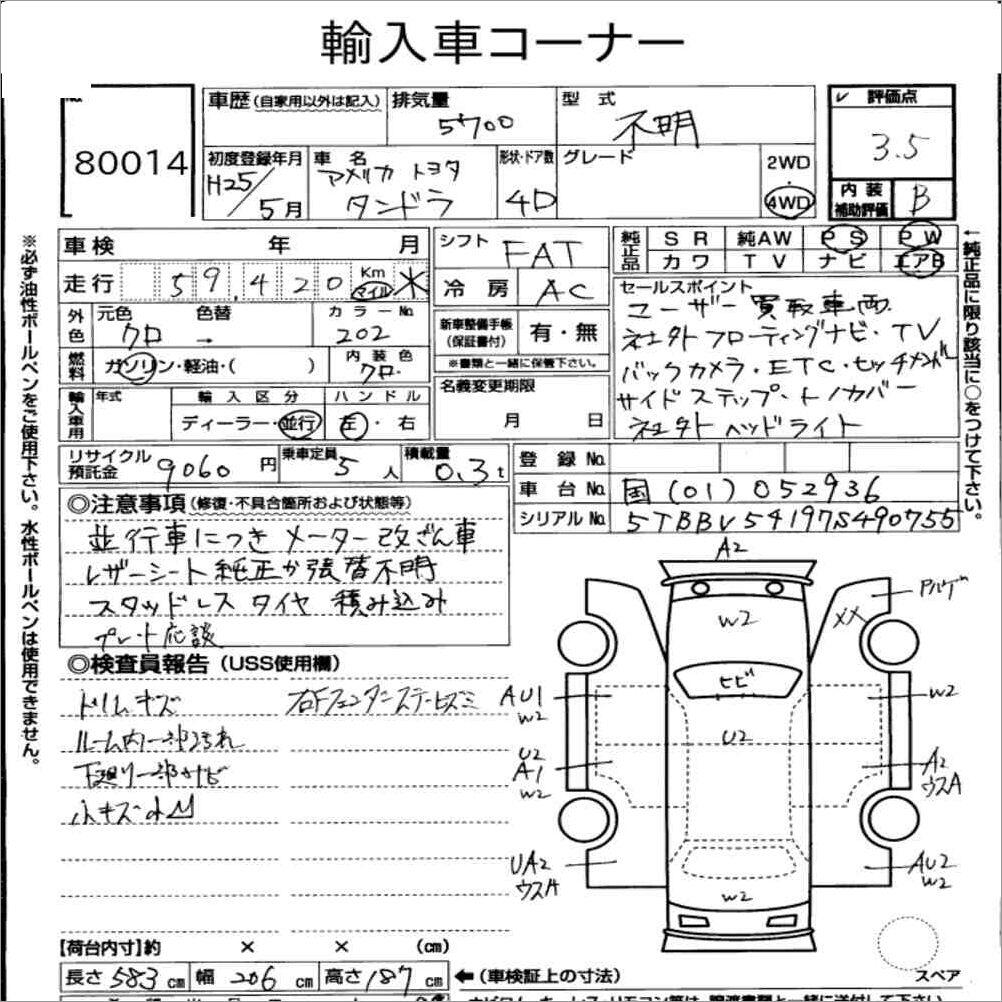 輸入車コーナー
80014
車歴(自家用以外は記入)
排気量
5700
型式
不明
評価点
3.5
初度登録年月
H25/5月
車名
アメリカ トヨタ
タンドラ
形状・ドア数
4D
グレード
2WD
・
4WD
内装
補助評価
B
車検 年 月
シフト
FAT
純正品
SR 純AW PS PW
カワ TV ナビ エアB
走行 59,420 Km マイル ※
冷房
AC
セールスポイント
ユーザー買取車両
社外フローティングナビ・TV
バックカメラ・ETC・セッチメンバー
サイドステップ・トノカバー
社外ヘッドライト
外色
元色 色替
クロ →
カラーNo.
202
新車整備手帳
(保証書付)
有・無
※書類と一緒に保管下さい。
燃料
ガソリン・軽油・( )
内装色
クロ
名義変更期限
月 日
輸入車用
年式
輸入区分
ディーラー・並行
ハンドル
左・右
リサイクル
預託金
9060円
乗車定員
5人
積載量
0.3t
登録No.
車台No.
国(01)052936
シリアルNo.
5TBBV54197S490755
◎注意事項(修復・不具合箇所および状態等)
並行車につきメーター改ざん車
レザーシート純正か張替不明
スタッドレスタイヤ積み込み
プレート応談
◎検査員報告(USS使用欄)
ドリムキズ
右Fフェンダーステーヒズミ
ルーム内一部汚れ
下廻り一部サビ
小キズ凹
A2
W2
Pハゲ
XX
ヒビ
AU1
W2
W2
U2
U2
A1
W2
A2
ウスA
UA2
ウスA
AU2
W2
W2
スペア
【荷台内寸】約 × × (cm)
長さ583cm 幅206cm 高さ187cm
←(車検証上の寸法)
※必ず油性ボールペンをご使用下さい。水性ボールペンは使用できません。
←純正品に限り該当に○をつけて下さい。